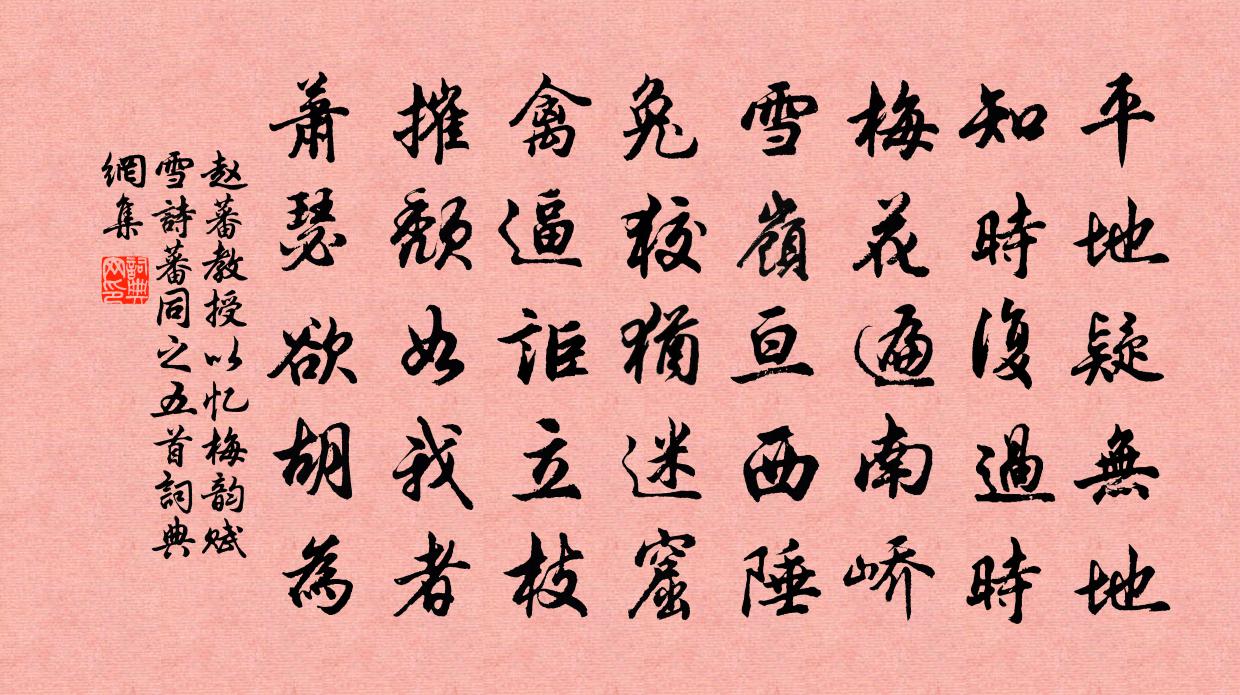 平地疑無地
知時復過時
梅花遍南嶠
雪嶺亘西陲
兔狡猶迷窟
禽逼詎立枝
摧頹如我者
蕭瑟欲胡為
赵蕃教授以忆梅韵赋
雪詩蕃同之五首詞典
網集
詞典網印